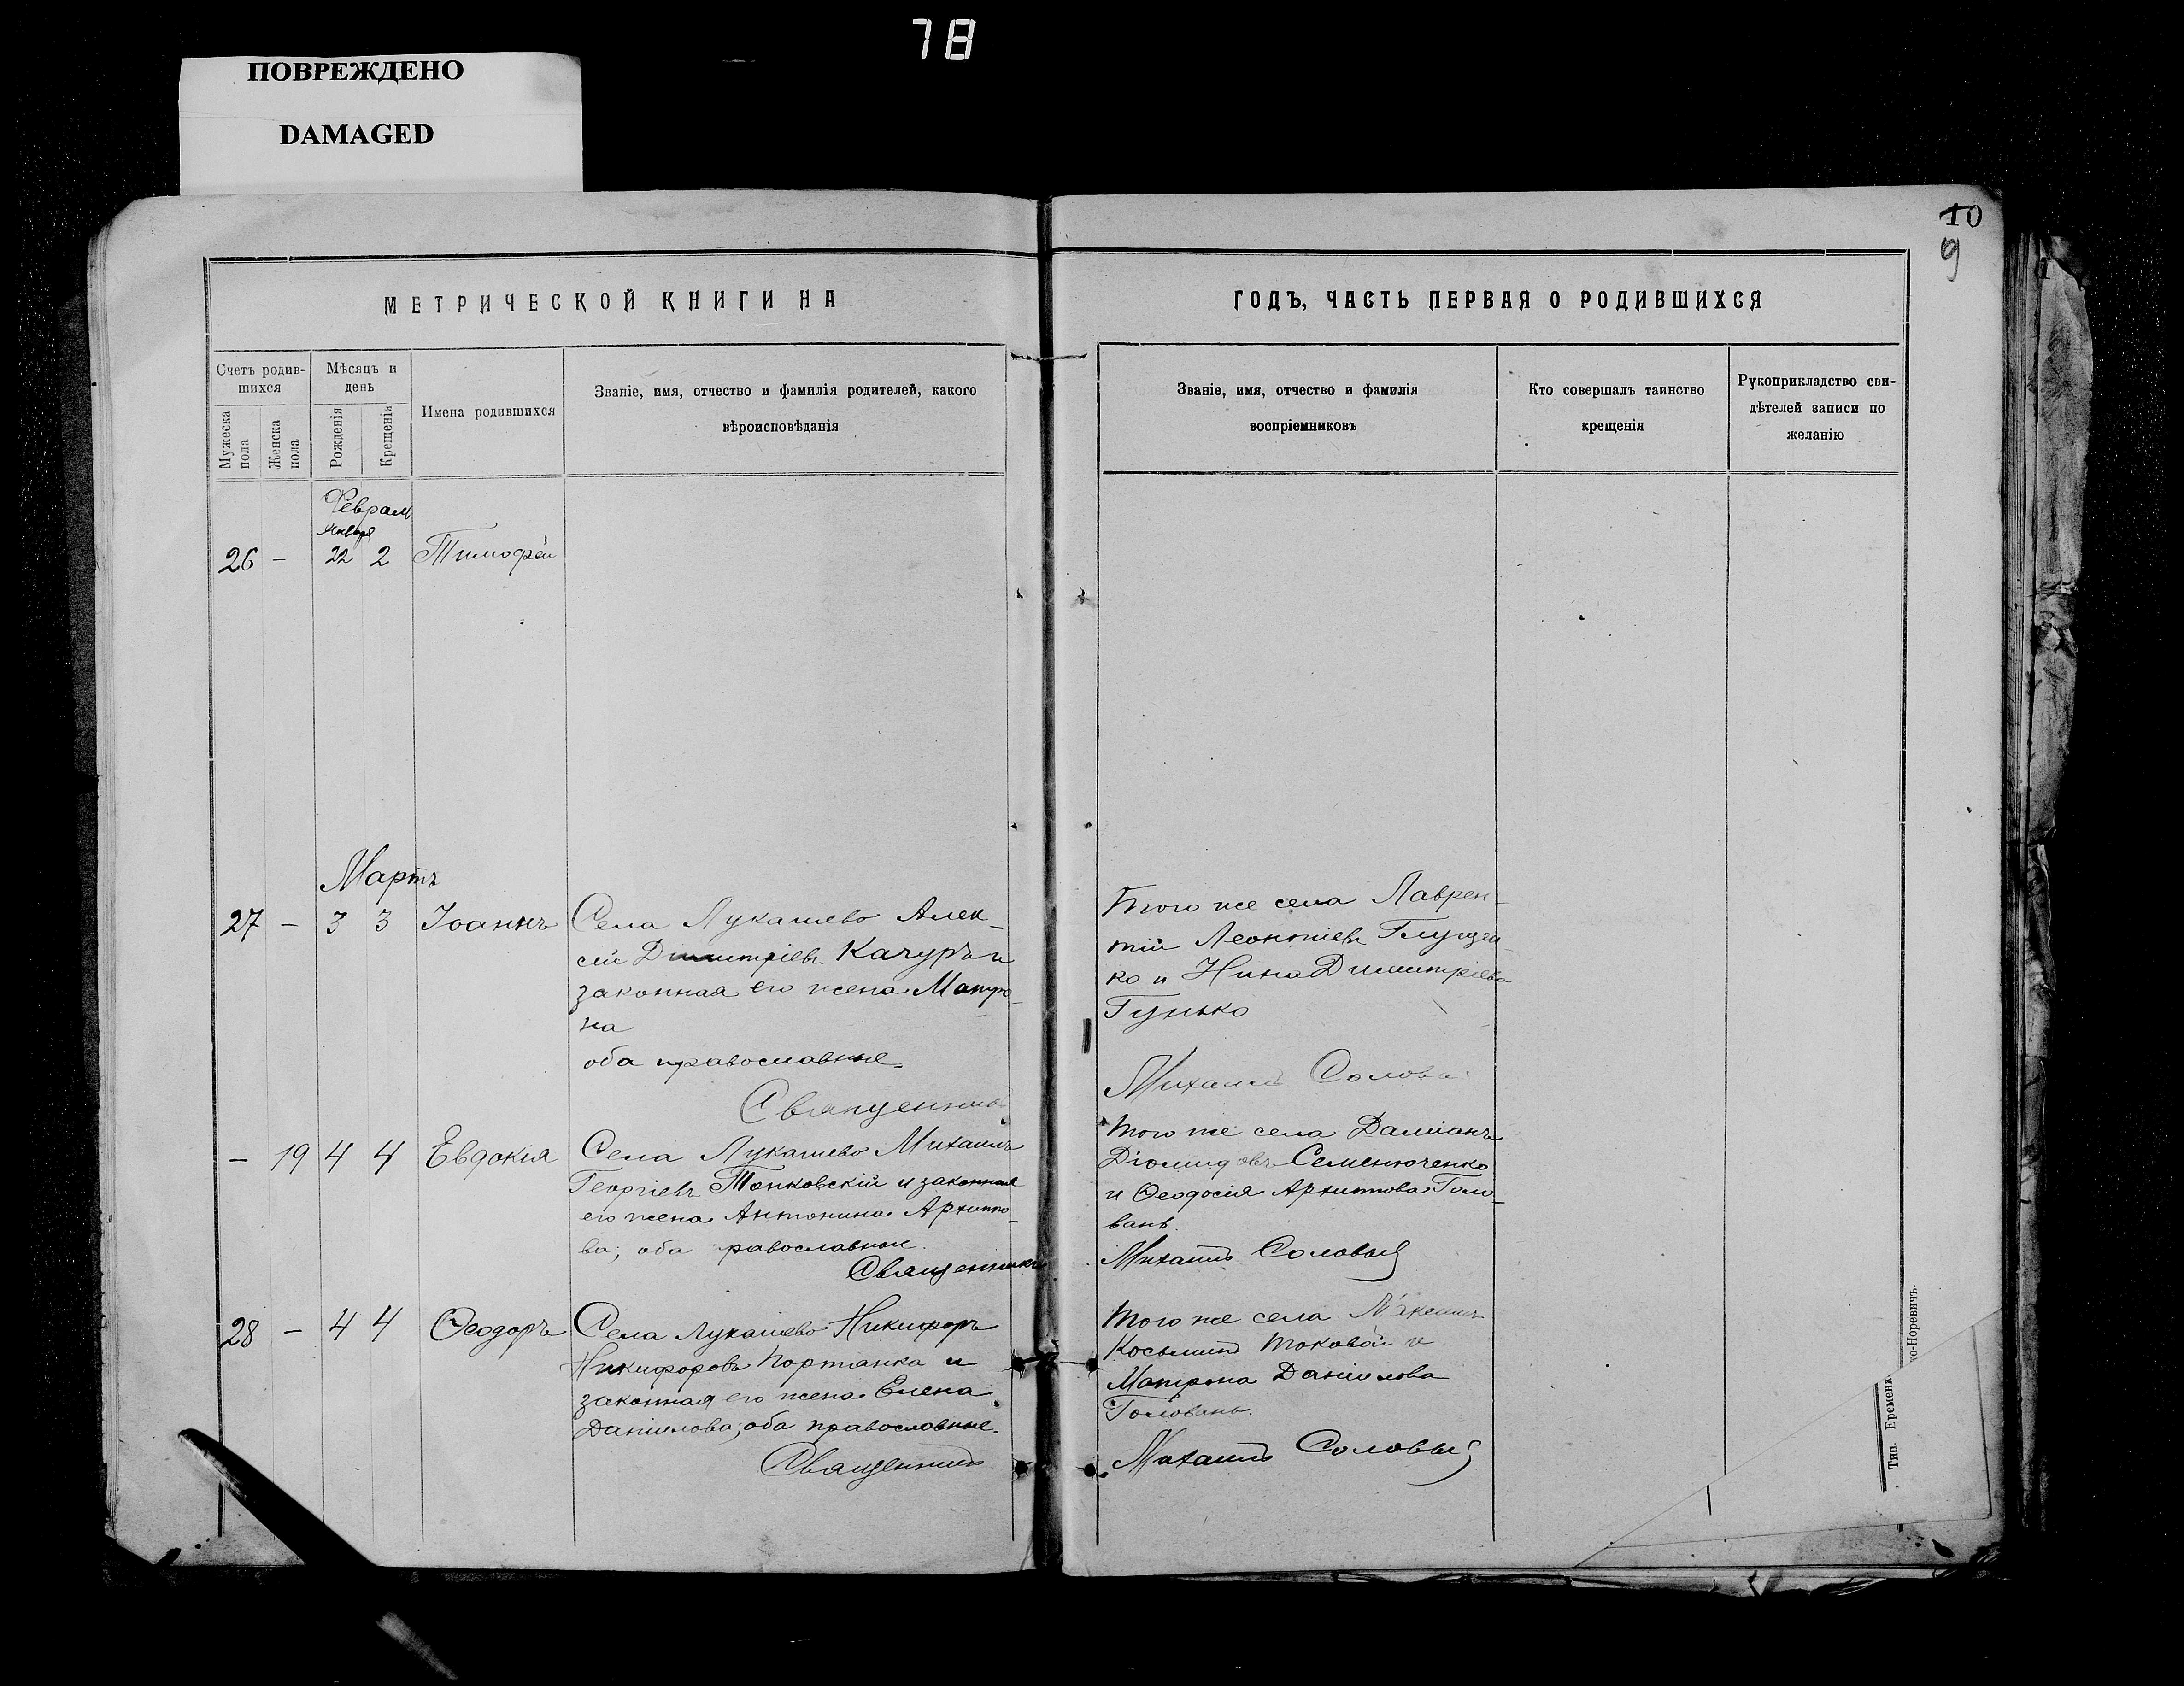 78
ПОВРЕЖДЕНО
DAMAGED
10
9
МЕТРИЧЕСКОЙ КНИГИ НА
Счетъ родив-
шихся
Мѣсяцъ и
день
Мужеска
пола
Женска
пола
Рожденія
Крещенія
Имена родившихся
Званіе, имя, отчество и фамилія родителей, какого
вѣроисповѣданія
Февраль
Января
26 - 22 2 Тимофей
Мартъ
27 - 3 3 Іоаннъ
Села Лукашево Алек-
сій Димитріевъ Качуръ и
законная его жена Матро-
на
оба православные.
Священникъ
- 19 4 4 Евдокія
Села Лукашево Михаилъ
Георгіевъ Топковскій и законная
его жена Антонина Архипо-
ва; оба православные.
Священникъ
28 - 4 4 Ѳеодоръ
Села Лукашево Никифоръ
Никифоровъ Портянка и
законная его жена Елена
Даніилова; оба православные.
Священникъ
ГОДЪ, ЧАСТЬ ПЕРВАЯ О РОДИВШИХСЯ
Званіе, имя, отчество и фамилія
воспріемниковъ
Кто совершалъ таинство
крещенія
Рукоприкладство сви-
дѣтелей записи по
желанію
Того же села Лаврен-
тій Леонтіевъ Глущен-
ко и Нина Димитріева
Гунько
Михаилъ
Того же села Даміанъ
Діомидовъ Семенюченко
и Ѳеодосія Архипова Голо-
вань.
Михаилъ Соловый
Того же села Максимъ
Косьминъ Токовой и
Матрона Даніилова
Головань.
Михаилъ Соловый
Тип. Еременк
ко-Норевичъ.
1